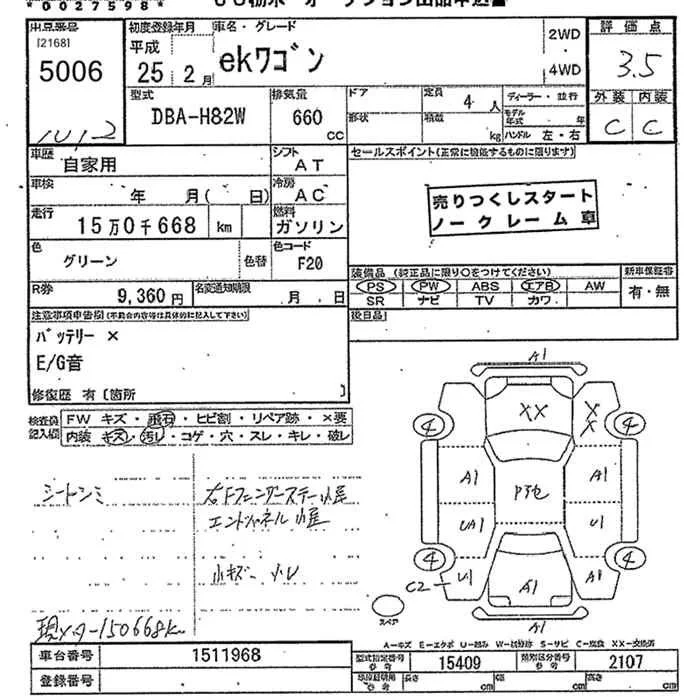 *0027598*
出品番号
[2168]
5006
初度登録年月
平成
25 2月
車名・グレード
ekワゴン
2WD
4WD
評価点
3.5
外装 内装
C C
型式
DBA-H82W
排気量
660
CC
ドア
形状
定員 4 人
積載 kg
ディーラー・並行
モデル年式 年
ハンドル 左・右
車歴
自家用
シフト
AT
セールスポイント(正常に機能するものに限ります)
売りつくしスタート
ノークレーム車
車検 年 月( 日)
冷房
AC
走行
15万0千668 km
燃料
ガソリン
色
グリーン
色替
色コード
F20
装備品 (純正品に限り○をつけてください)
PS PW ABS エアB AW
SR ナビ TV カワ
新車保証書
有・無
R券
9,360円
名変通知期限
月 日
後日品
注意事項申告欄(不具合内容等は具体的に記入して下さい)
バッテリー ×
E/G音
修復歴 有 〔箇所 〕
検査員記入欄
FW キズ・飛石・ヒビ割・リペア跡・×要
内装 キズ・汚レ・コゲ・穴・スレ・キレ・破レ
シートシミ
右Fフェンダーステー
小キズ
現メーター150668km
A1
XX
X
X
4
4
A1
A1
UA1
U1
4
4
C2
U1
A1
A1
A1
スペア
A-キズ E-エクボ U-凹み W-補修跡 S-サビ C-腐食 XX-交換済
車台番号
1511968
型式指定番号
参考
15409
類別区分番号
参考
2107
登録番号
車庫証明用
参考
長さ cm
幅 cm
高さ cm